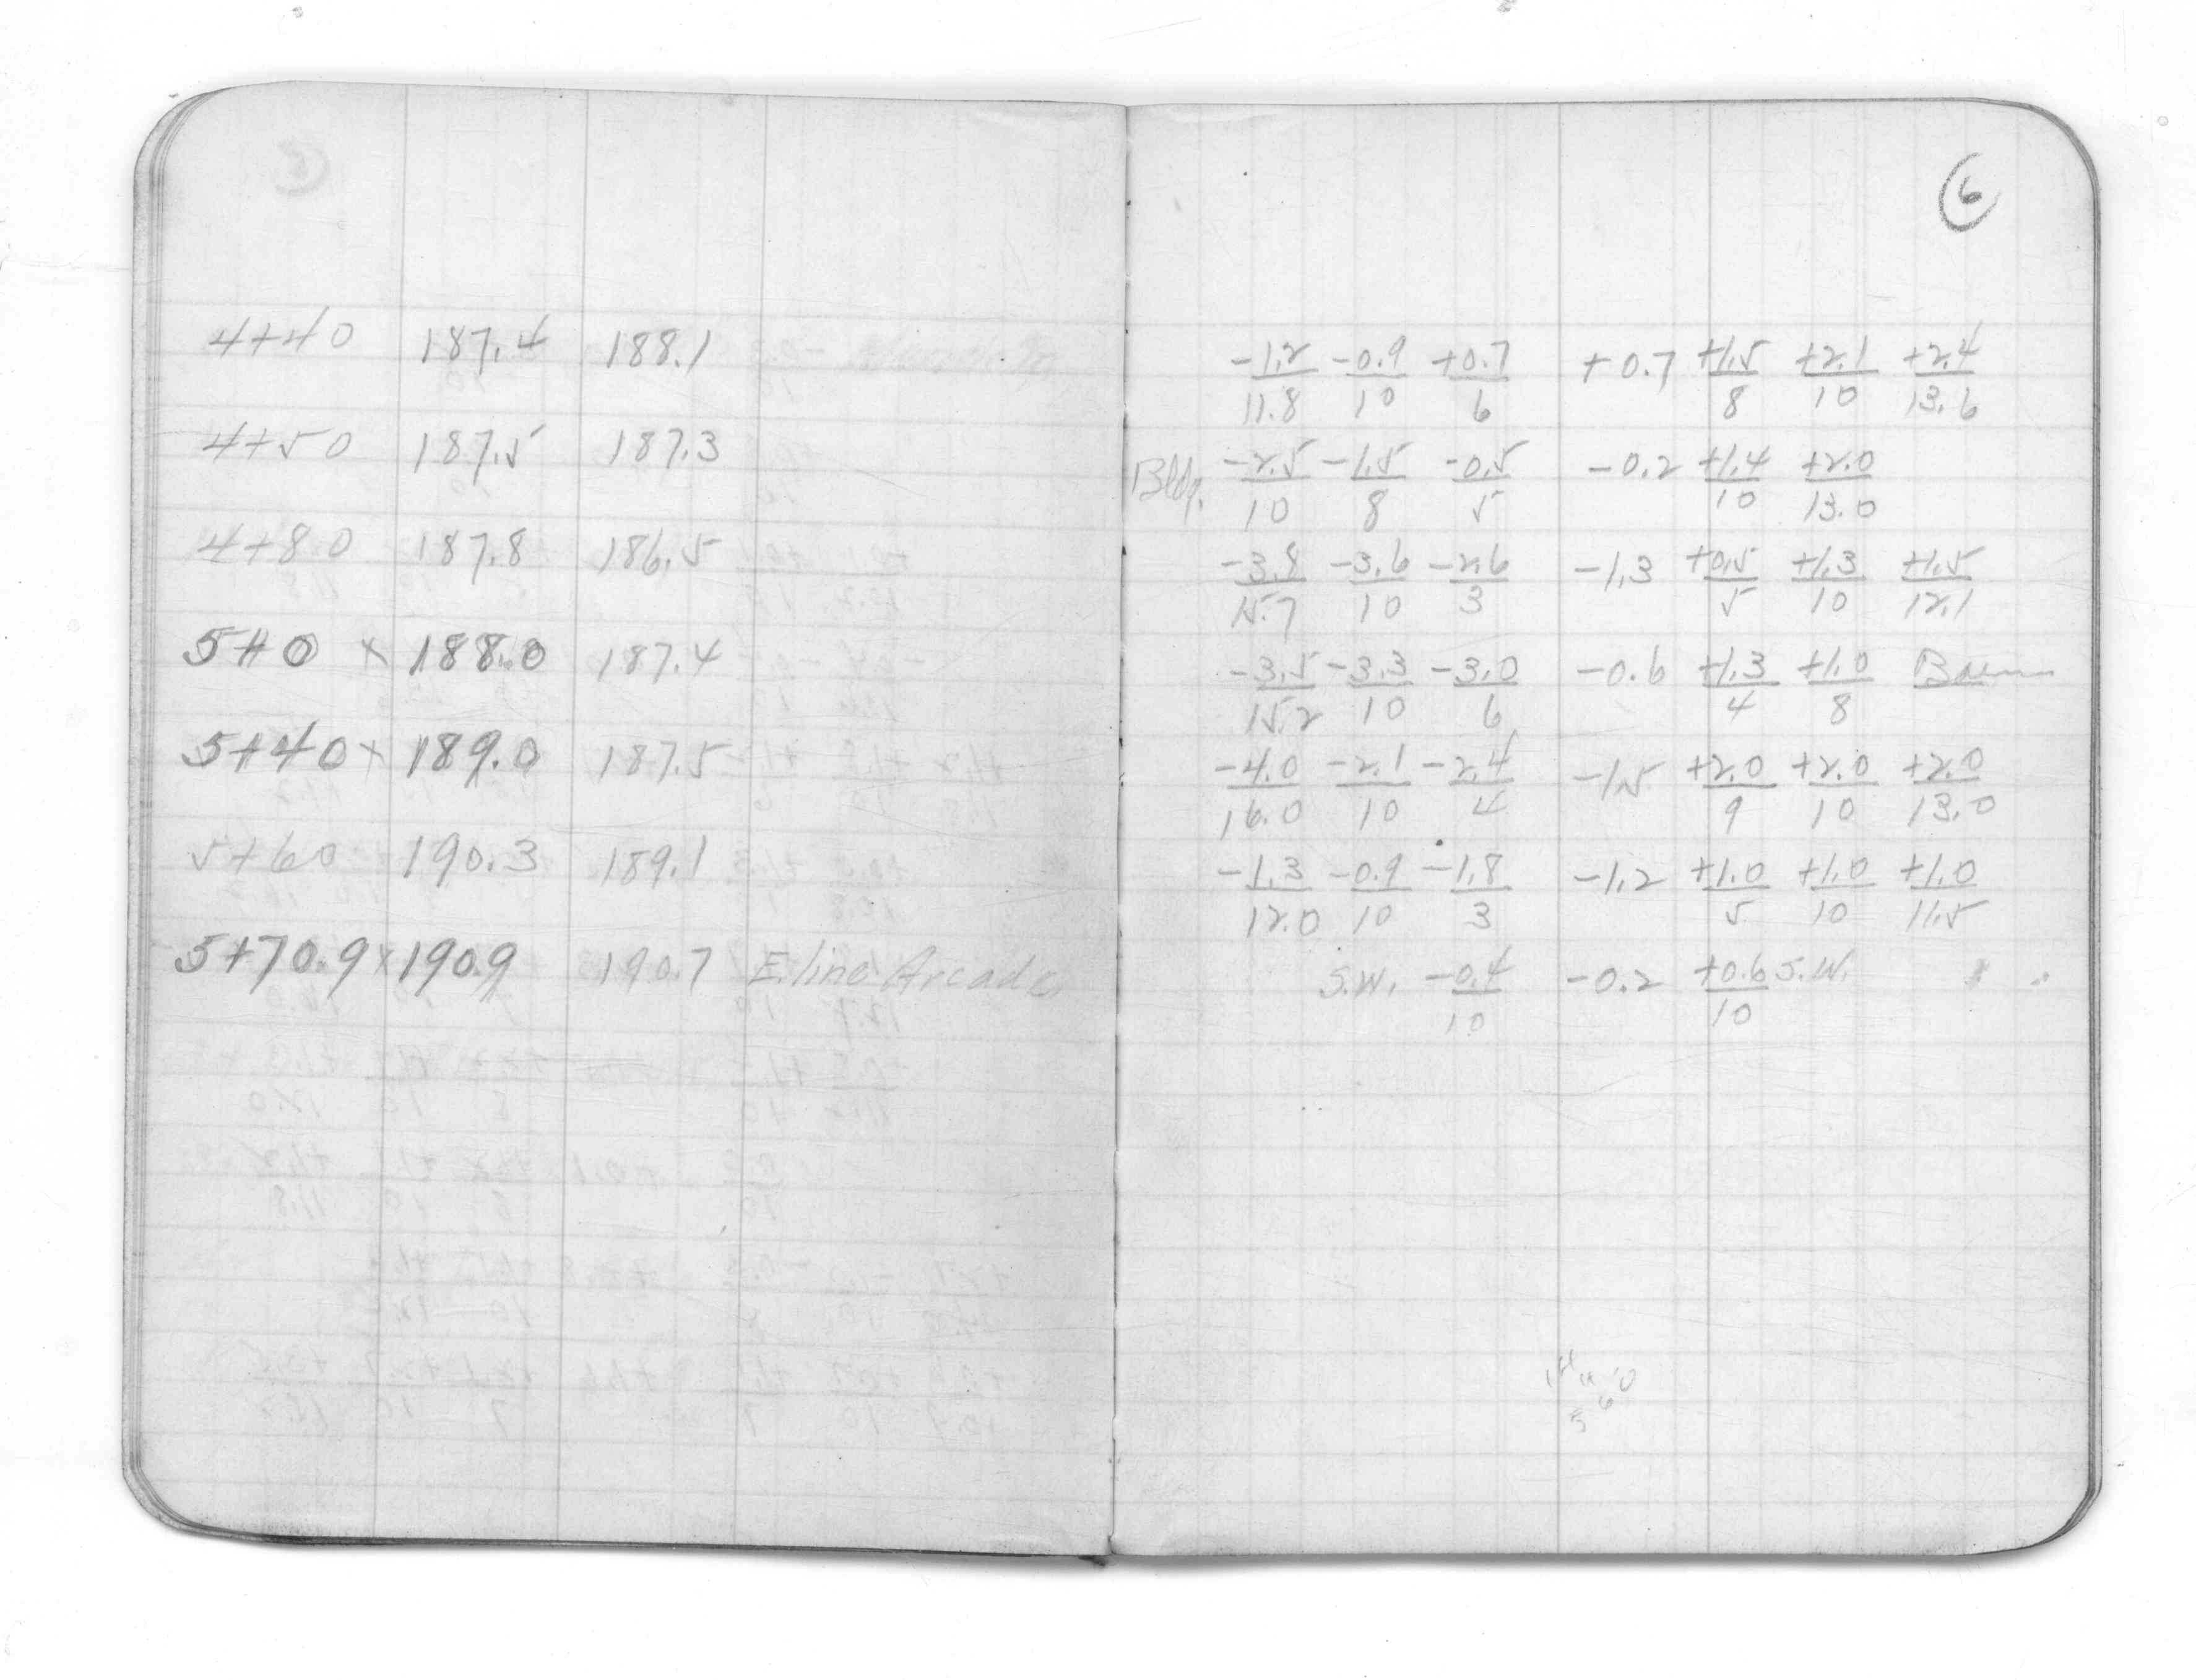 6
4+40 187.4 188.1
-1.2 -0.9 +0.7 +0.7 +1.5 +2.1 +2.4
11.8 10 6 8 10 13.6
4+50 187.5 187.3
Bldg. -2.5 -1.5 -0.5 -0.2 +1.4 +2.0
10 8 5 10 13.0
4+80 187.8 186.5
-3.8 -3.6 -2.6 -1.3 +0.5 +1.3 +1.5
15.7 10 3 5 10 12.1
5+0 x 188.0 187.4
-3.5 -3.3 -3.0 -0.6 +1.3 +1.0
15.2 10 6 4 8
5+40 x 189.0 187.5
-4.0 -2.1 -2.4 -1.5 +2.0 +2.0 +2.0
16.0 10 4 9 10 13.0
5+60 190.3 189.1
-1.3 -0.9 -1.8 -1.2 +1.0 +1.0 +1.0
12.0 10 3 5 10 11.5
5+70.9 x 190.9 190.7 E. line Arcade
S.W. -0.4 -0.2 +0.6 S.W.
10 10